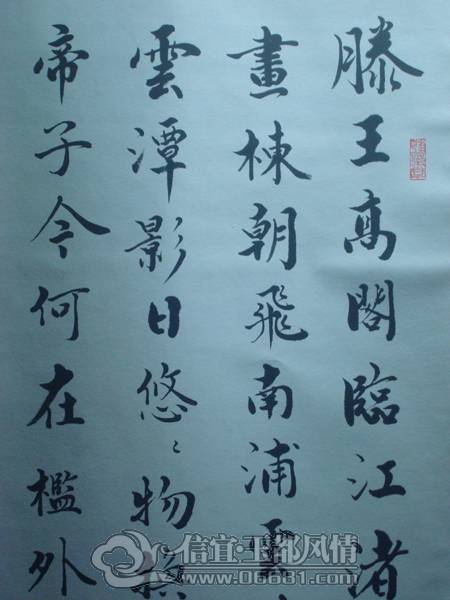 滕王高閣臨江渚
畫棟朝飛南浦雲
雲潭影日悠々物換
帝子今何在檻外
信宜·玉都风情
www.06681.com